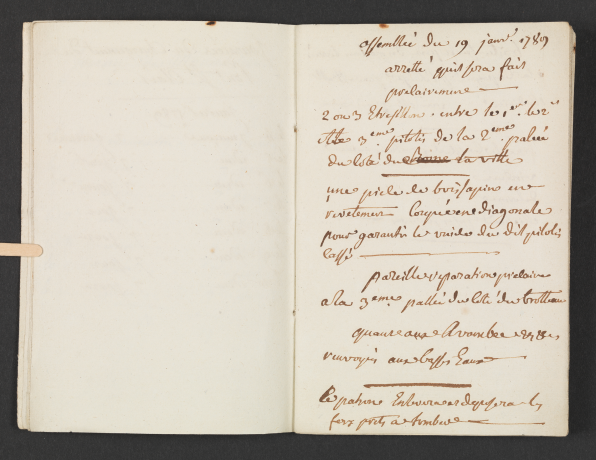 assemblée du 19 janv. 1789
arretté quil sera fait
prelairement
2 ou 3 Etresillon entre le 1er. le 2e
3eme. pilotis de la 2eme. palée
du coté du la ville
une piece de bois sapin en
revetement Coupée en diagonale
pour garantir le vuide du dit pilotis
Cassé
pareille reparation prelaire
a la 3eme pallée du coté du brotteau
quant aux
renvoyés aux basses Eaux
le patron deposera les
fers prets a tomber